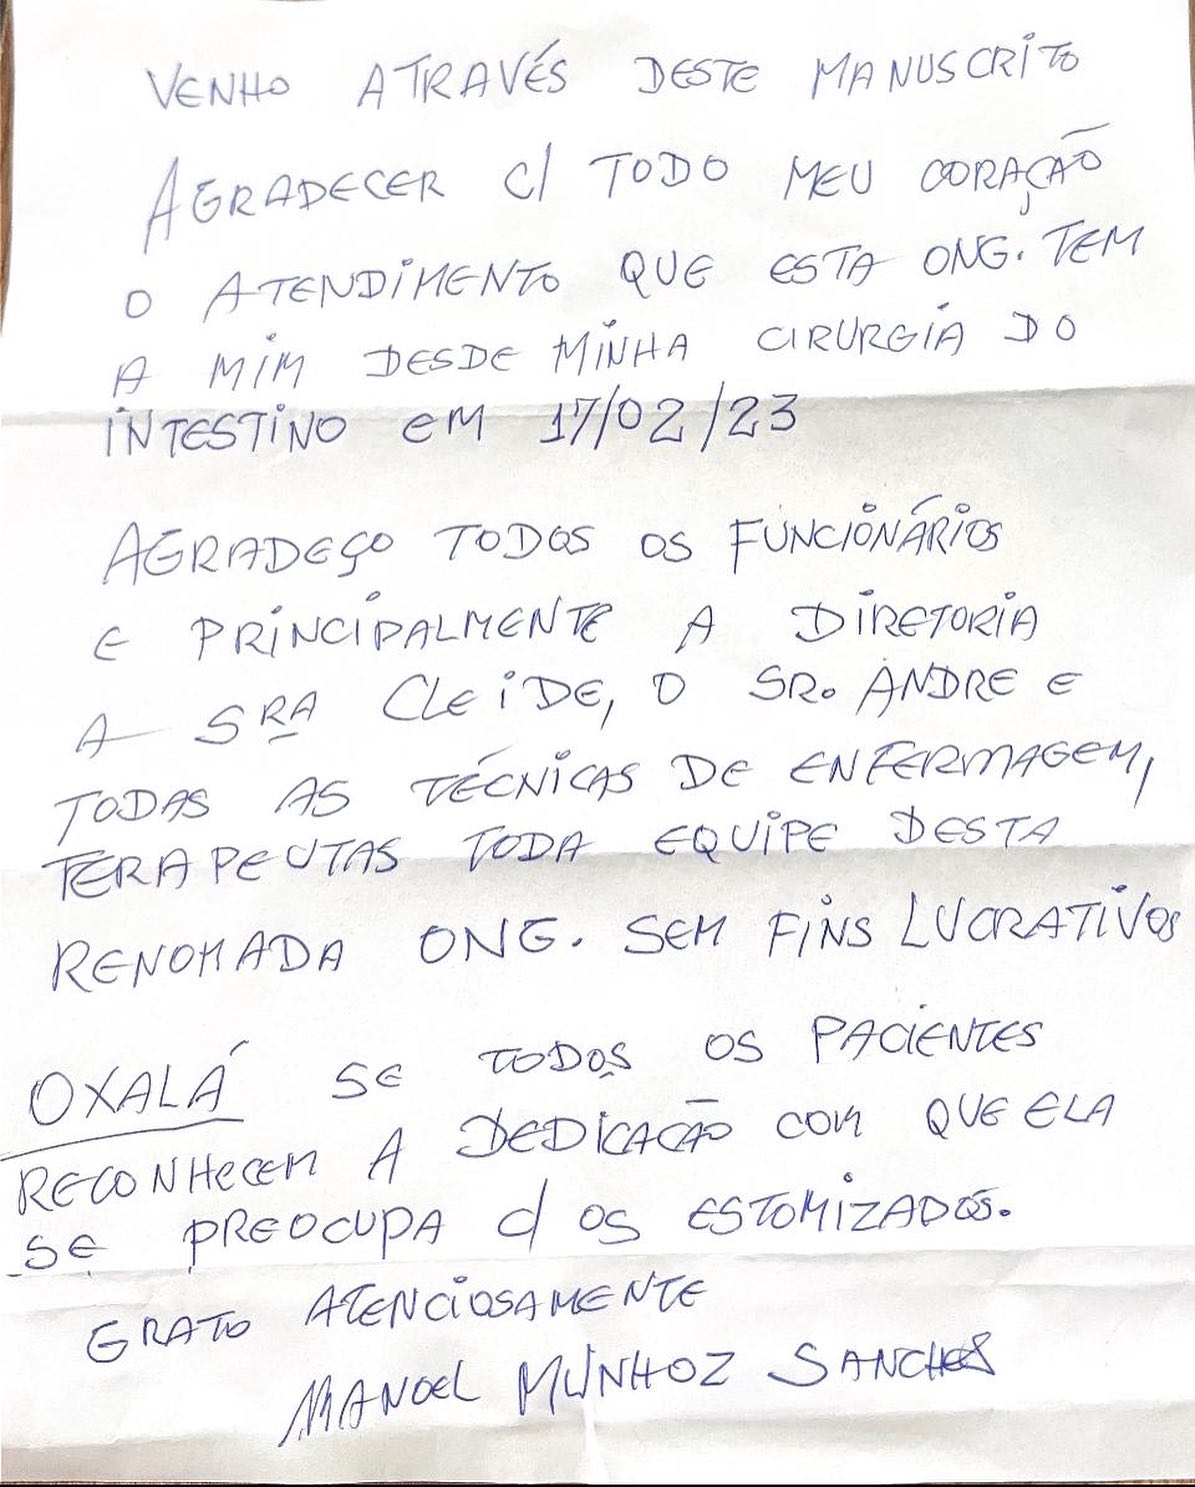 VENHO ATRAVÉS DESTE MANUSCRITO
AGRADECER C/ TODO MEU CORAÇÃO
O ATENDIMENTO QUE ESTA ONG. TEM
A MIM DESDE MINHA CIRURGIA DO
INTESTINO EM 17/02/23
AGRADEÇO TODOS OS FUNCIONÁRIOS
E PRINCIPALMENTE A DIRETORIA
A SRA CLEIDE, O SR. ANDRE E
TODAS AS TÉCNICAS DE ENFERMAGEM,
TERAPEUTAS TODA EQUIPE DESTA
RENOMADA ONG. SEM FINS LUCRATIVOS
OXALÁ SE TODOS OS PACIENTES
RECONHECEM A DEDICACÃO COM QUE ELA
SE PREOCUPA C/ OS ESTOMIZADOS.
GRATO ATENCIOSAMENTE
MANOEL MUNHOZ SANCHES